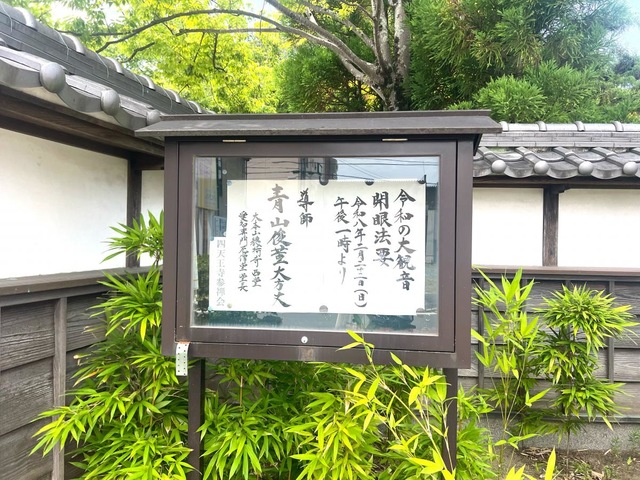 令和の大観音
開眼法要
令和八年二月二十二日(日)
午後一時より
導師
青山俊董大和尚
大本山總持寺西堂
愛知専門尼僧堂堂長
四天王寺参禅会